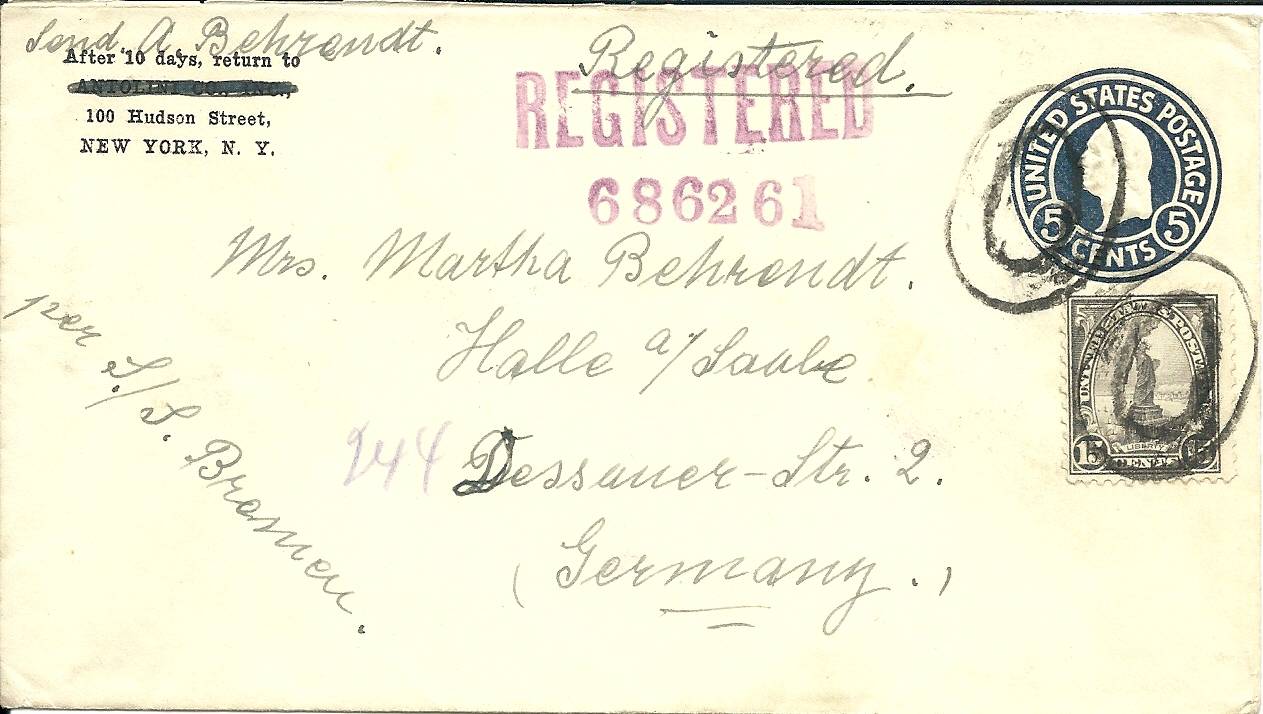 Send. A Behrendt.
After 10 days, return to
ANTOLINI CO., INC.,
100 Hudson Street,
NEW YORK, N. Y.
Registered.
REGISTERED
686261
UNITED STATES POSTAGE
5 CENTS 5
Mrs. Martha Behrendt.
Halle a/ Saale
244 Dessauer-Str. 2.
(Germany.)
per S./S. Bremen.
LIBERTY
15 CENTS 15